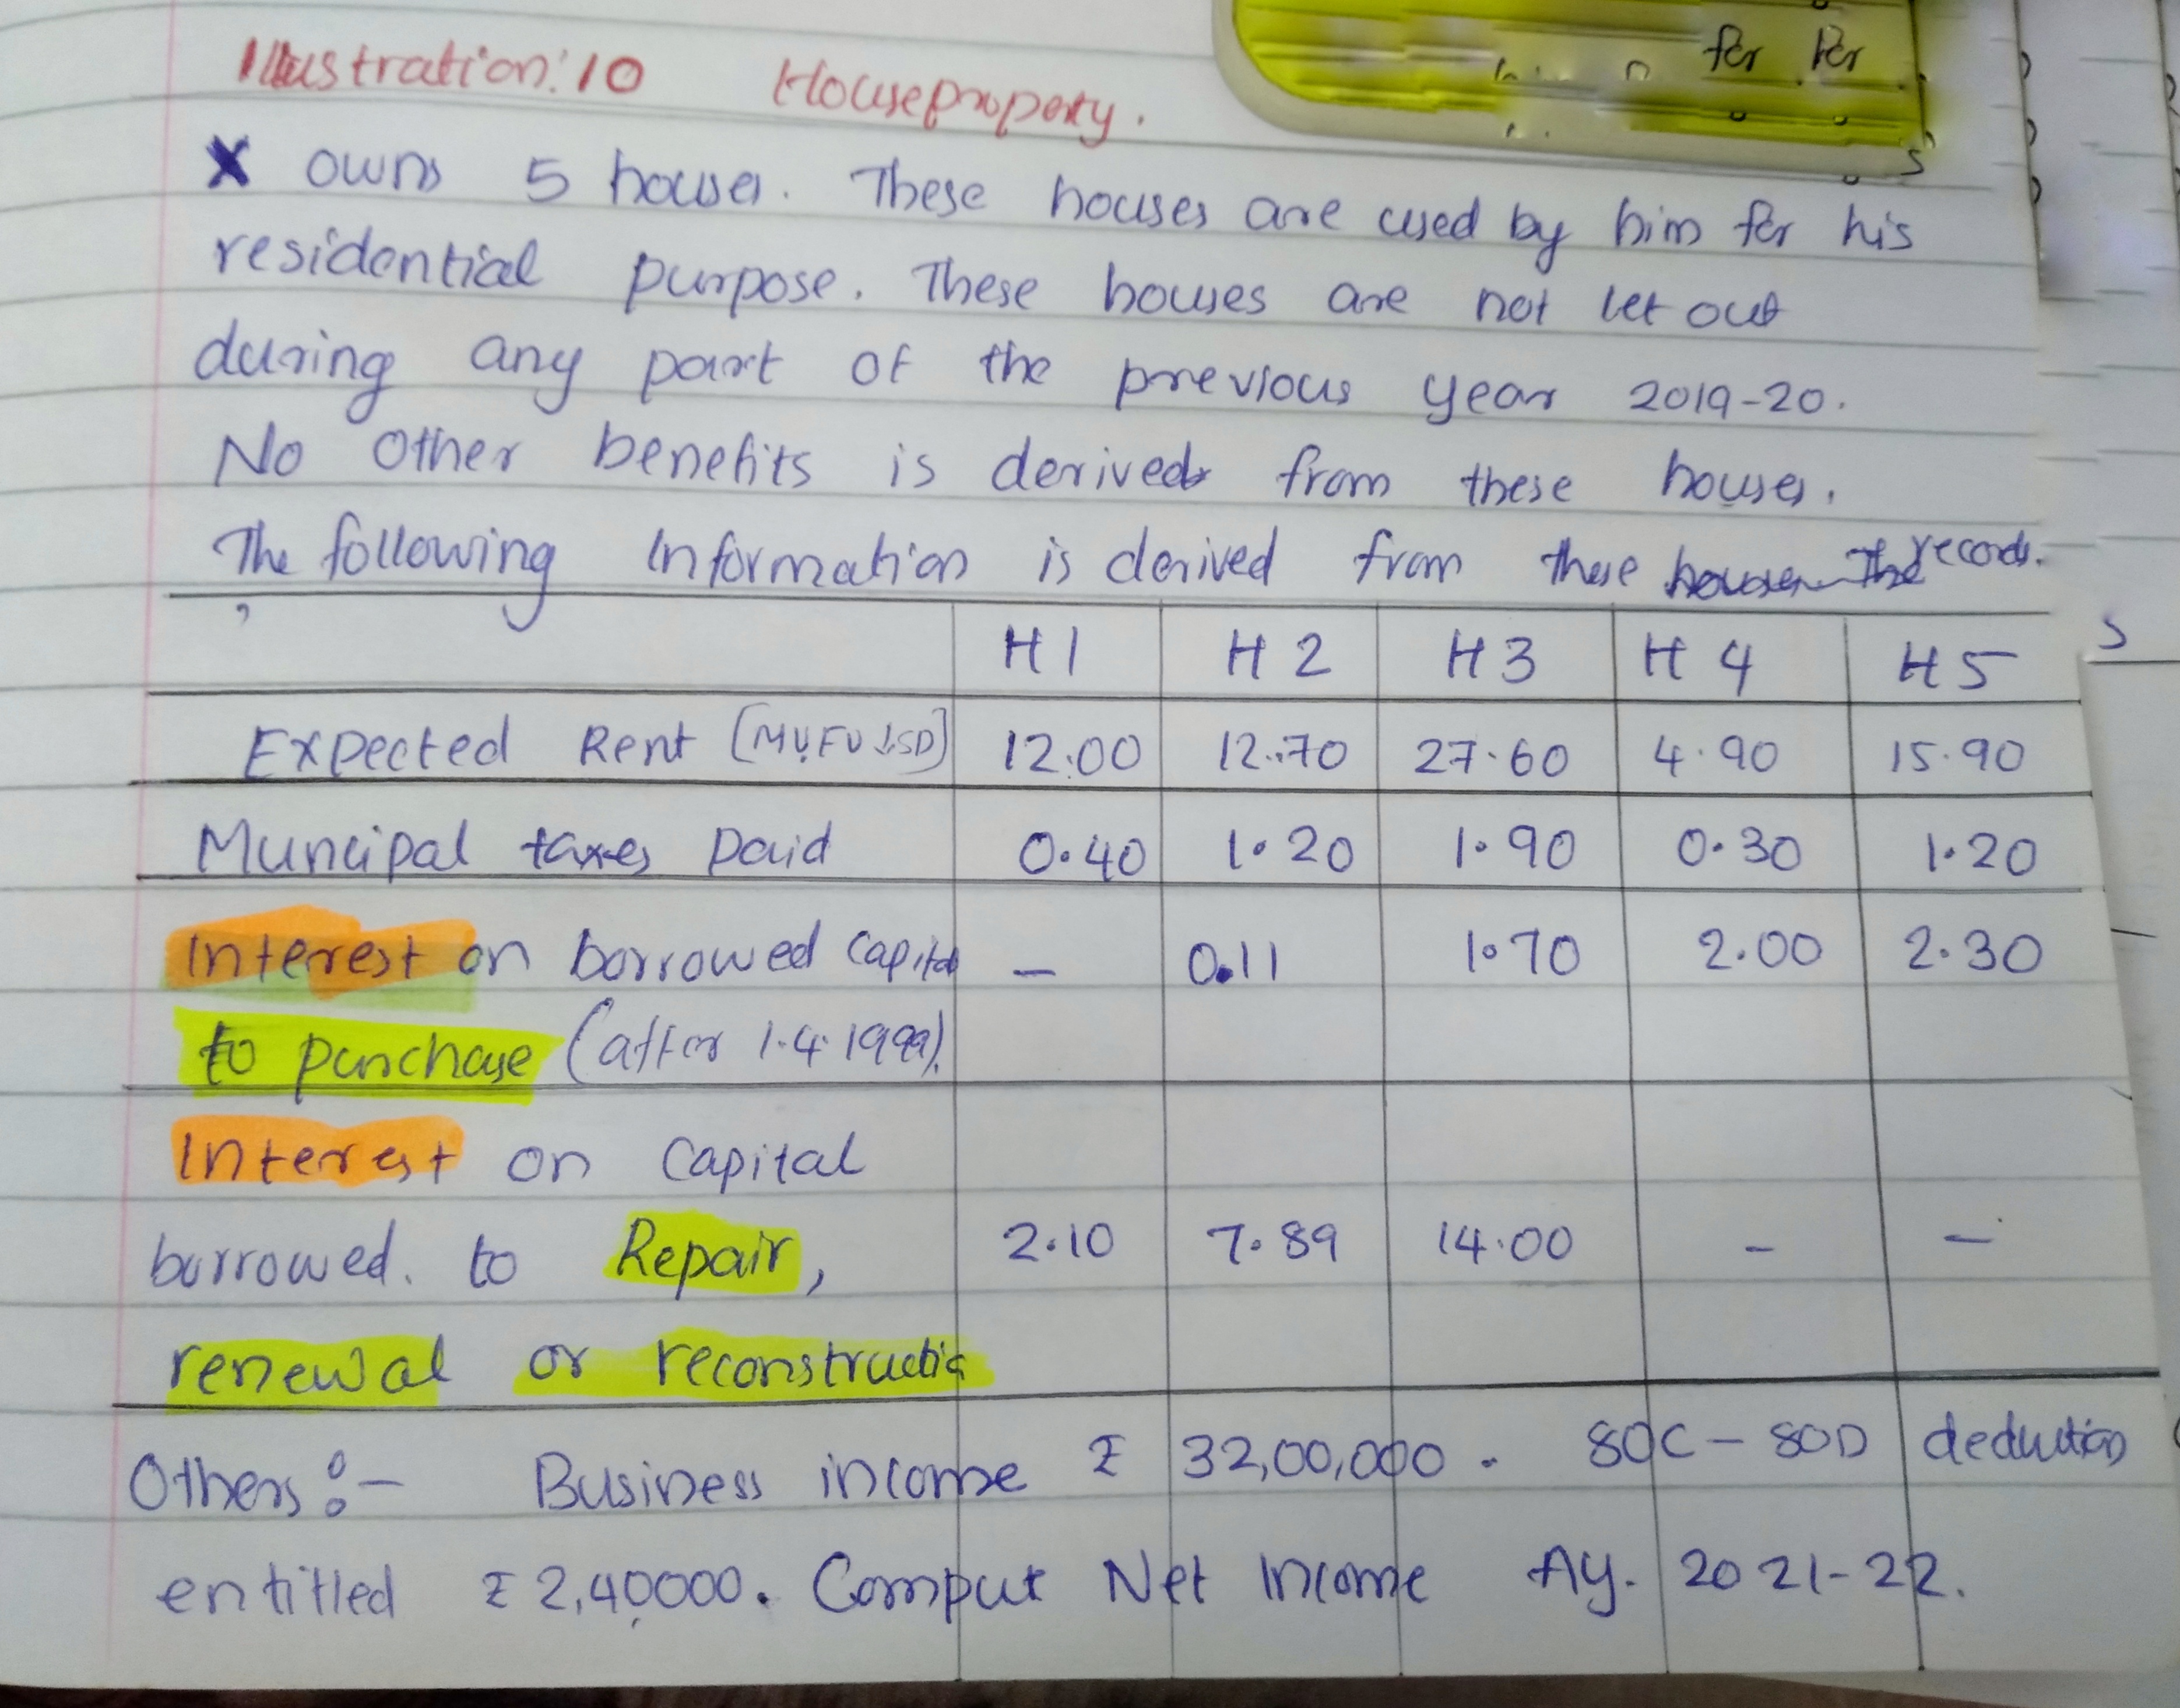 Illustration: 10 Houseproperty.
X owns 5 houses. These houses are used by him for his
residential purpose. These houses are not let out
during any part of the previous year 2019-20.
No other benefits is derived from these houses.
The following Information is derived from these records.
H1 H2 H3 H4 H5
Expected Rent [MV, FV, SD] 12.00 12.70 27.60 4.90 15.90
Muncipal taxes paid 0.40 1.20 1.90 0.30 1.20
Interest on borrowed capital – 0.11 1.70 2.00 2.30
to purchase (after 1.4.1999).
Interest on capital
borrowed. to Repair, 2.10 7.89 14.00 – –
renewal or reconstructio
Others :- Business income ₹ 32,00,000. 80C-80D deduction
entitled ₹ 2,40000. Comput Net Income AY. 2021-22.
for. for